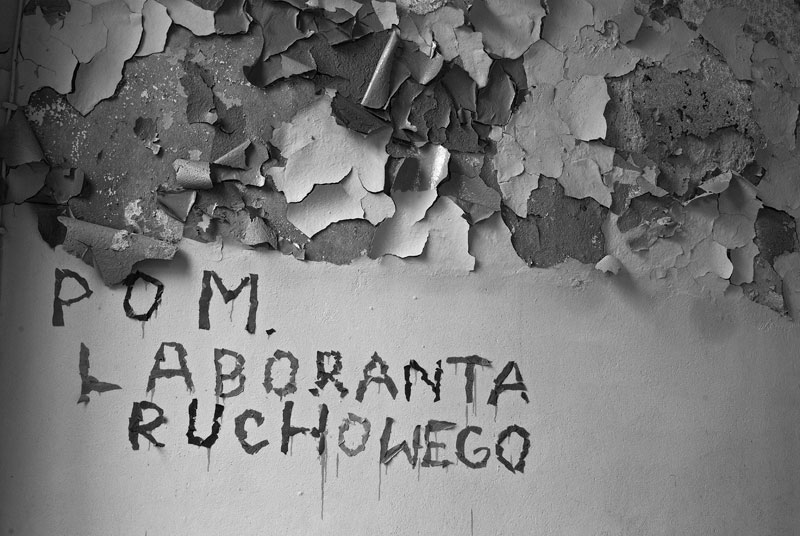 POM.
LABORANTA
RUCHOWEGO